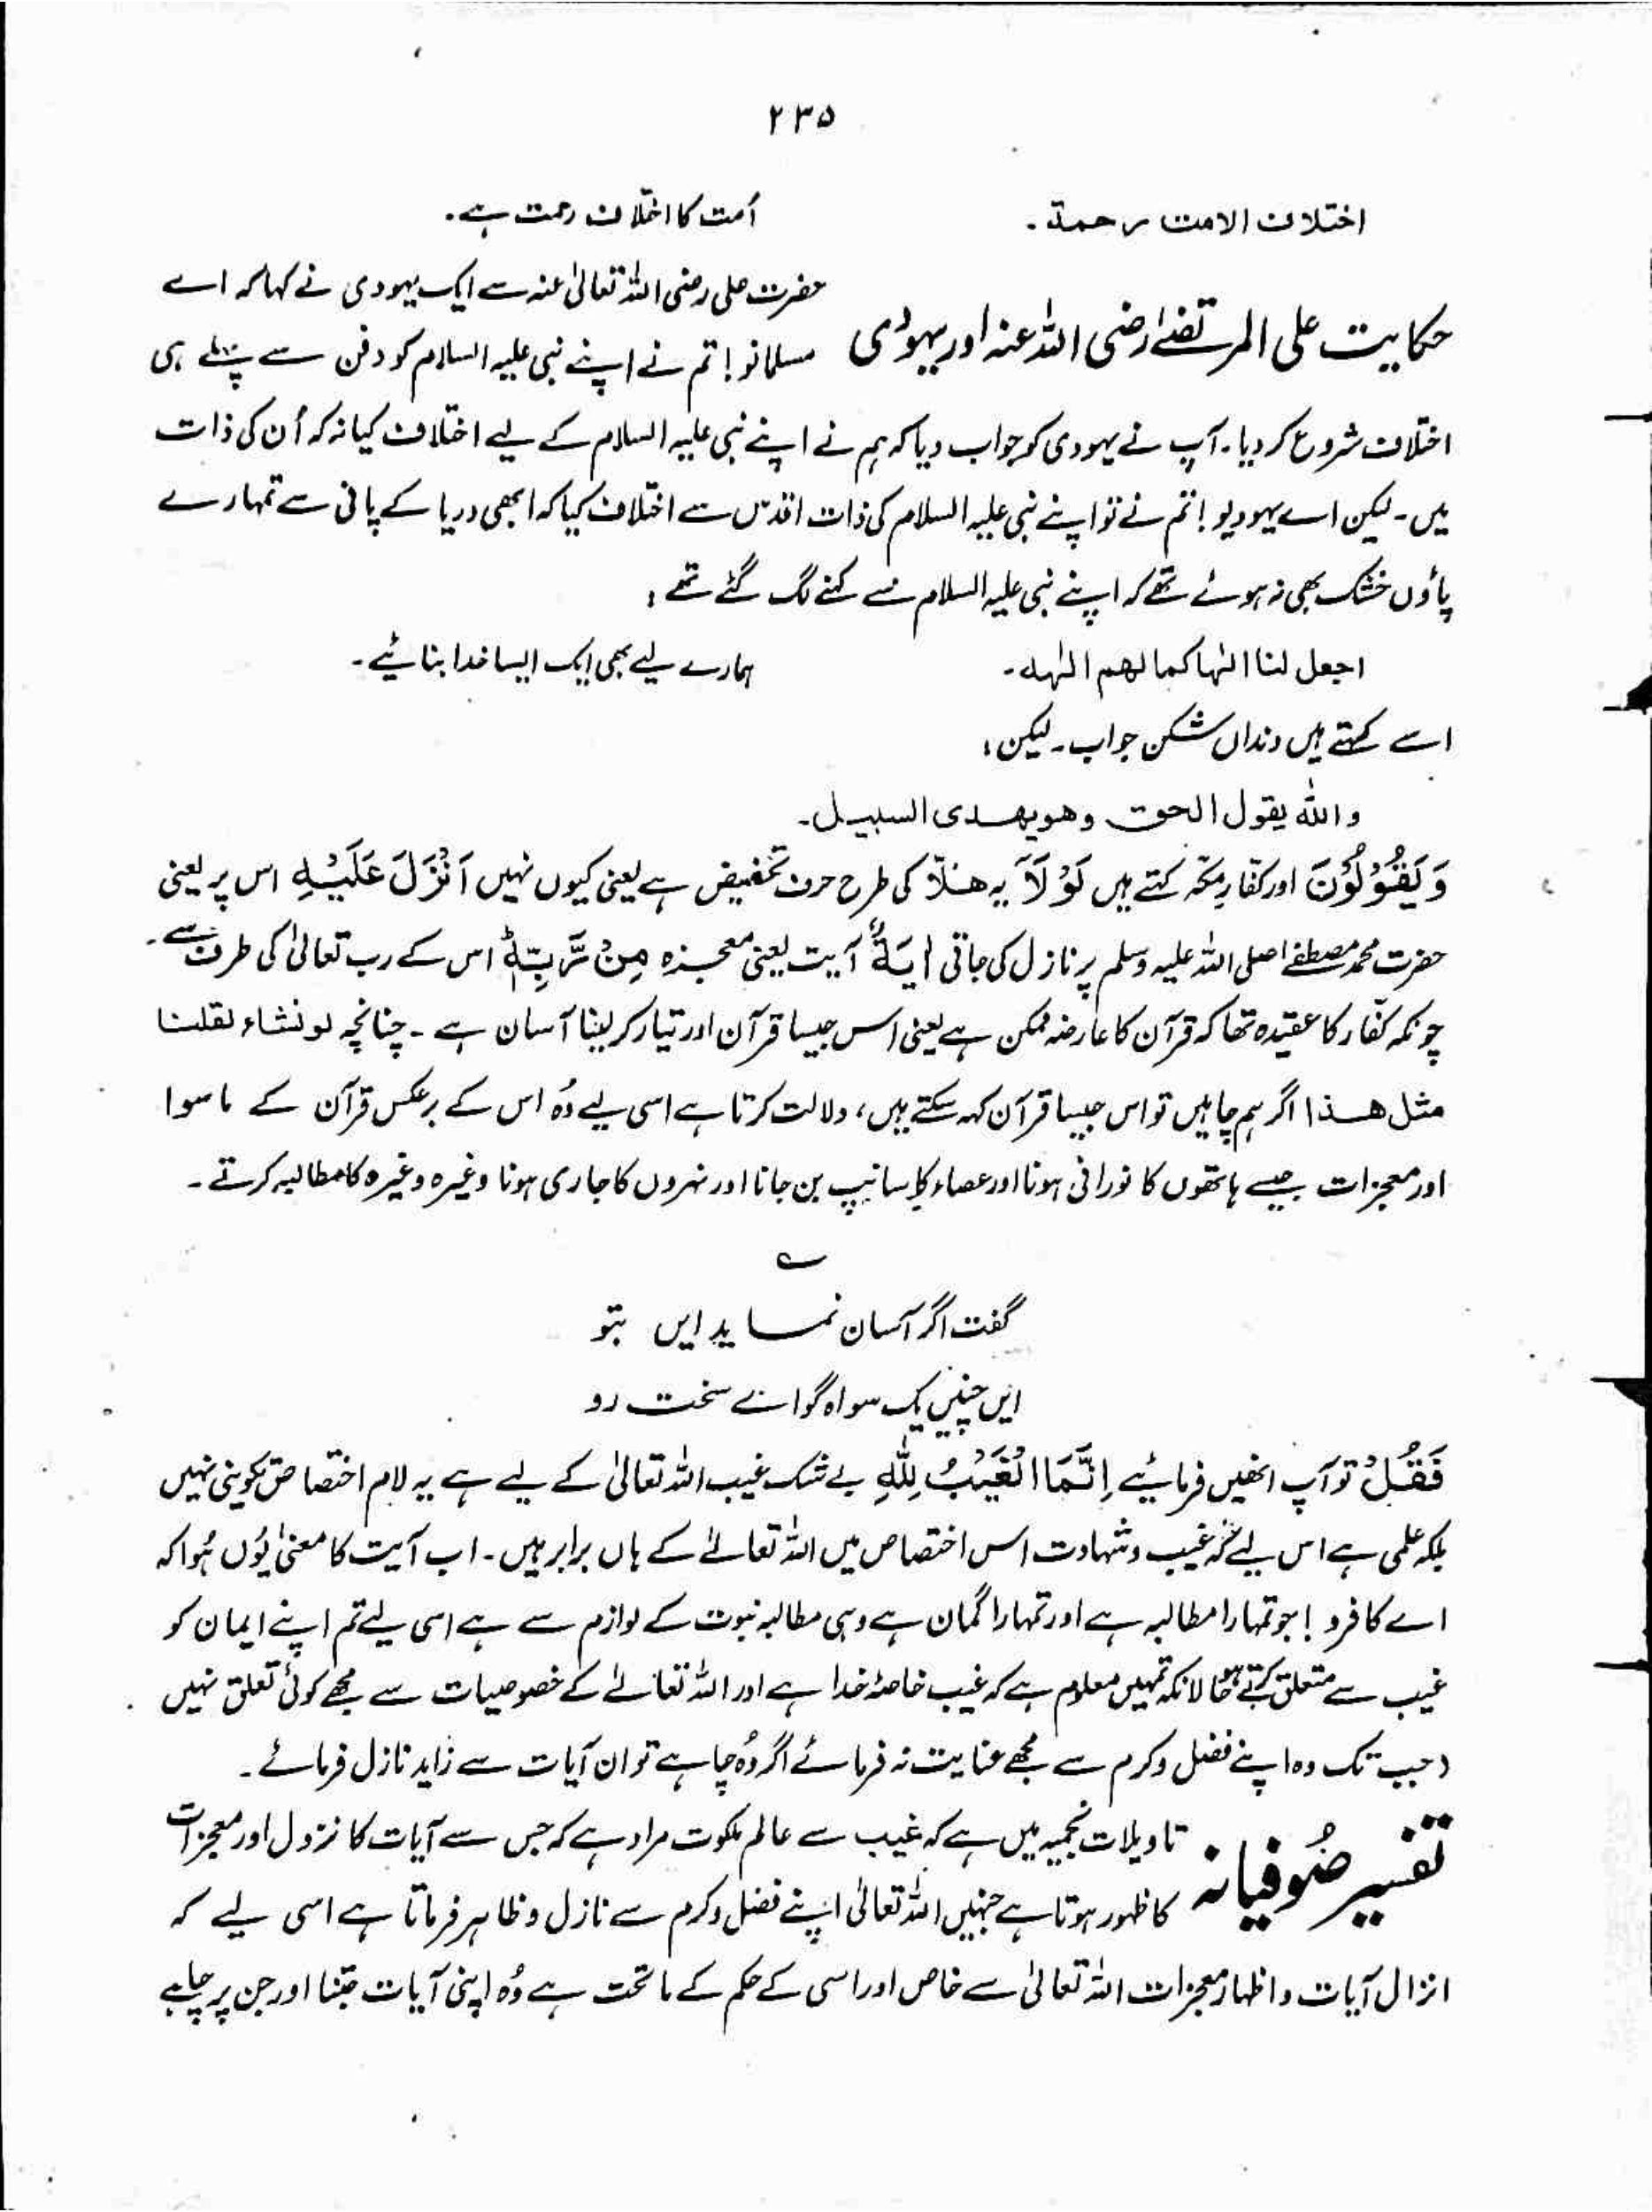 ۲۳۵
اختلاف الامت رحمة۔ اُمت کا اختلاف رحمت ہے۔
حضرت علی رضی اللہ تعالیٰ عنہ سے ایک یہودی نے کہا کہ اے
حکایت علی المرتضےٰ رضی اللہ عنہ اور یہودی مسلمانو! تم نے اپنے نبی علیہ السلام کو دفن سے پہلے ہی
اختلاف شروع کر دیا۔ آپ نے یہودی کو جواب دیا کہ ہم نے اپنے نبی علیہ السلام کے لیے اختلاف کیا نہ کہ اُن کی ذات
میں۔ لیکن اے یہودیو! تم نے تو اپنے نبی علیہ السلام کی ذات اقدس سے اختلاف کیا کہ ابھی دریا کے پانی سے تمہارے
پاؤں خشک بھی نہ ہوئے تھے کہ اپنے نبی علیہ السلام سے کہنے لگ گئے تھے :
اجعل لنا الٰہا کما لھم الٰہہ۔ ہمارے لیے بھی ایک ایسا خدا بنائیے۔
اسے کہتے ہیں دنداں شکن جواب۔ لیکن :
واللہ یقول الحق وھو یھدی السبیل۔
وَ یَقُوْلُوْنَ اور کفّارِ مکّہ کہتے ہیں لَوْ لَآ یہ ھلّا کی طرح حرف تحفیض ہے یعنی کیوں نہیں اُنْزِلَ عَلَیْہِ اس پر یعنی
حضرت محمد مصطفےٰ صلی اللہ علیہ وسلم پر نازل کی جاتی اٰیَۃٌ آیت یعنی معجزہ مِنْ رَّبِّہٖ اس کے رب تعالیٰ کی طرف سے۔
چونکہ کفّار کا عقیدہ تھا کہ قرآن کا عارضہ ممکن ہے یعنی اس جیسا قرآن اور تیار کر لینا آسان ہے۔ چنانچہ لو نشاء لقلنا
مثل ھذا اگر ہم چاہیں تو اس جیسا قرآن کہہ سکتے ہیں، دلالت کرتا ہے اسی لیے وُہ اس کے برعکس قرآن کے ماسوا
اور معجزات جیسے ہاتھوں کا نورانی ہونا اور عصاء کا سانپ بن جانا اور نہروں کا جاری ہونا وغیرہ وغیرہ کا مطالبہ کرتے۔
؎
گفت اگر آسان نماید ایں بتو
ایں چنیں یک سواہ گو اے سخت رو
فَقُلْ تو آپ انھیں فرمائیے اِنَّمَا الْغَیْبُ لِلّٰہِ بے شک غیب اللہ تعالیٰ کے لیے ہے یہ لام اختصاص تکوینی نہیں
بلکہ علمی ہے اس لیے کہ غیب و شہادت اس اختصاص میں اللہ تعالےٰ کے ہاں برابر ہیں۔ اب آیت کا معنیٰ یُوں ہُوا کہ
اے کافرو! جو تمہارا مطالبہ ہے اور تمہارا گمان ہے وہی مطالبہ نبوت کے لوازم سے ہے اسی لیے تم اپنے ایمان کو
غیب سے متعلق کرتے ہو حالانکہ تمہیں معلوم ہے کہ غیب خاصۂ خدا ہے اور اللہ تعالےٰ کے خصوصیات سے مجھے کوئی تعلق نہیں
(جب تک وہ اپنے فضل و کرم سے مجھے عنایت نہ فرمائے اگر وُہ چاہے تو ان آیات سے زاید نازل فرمائے۔
تاویلات نجمیہ میں ہے کہ غیب سے عالم ملکوت مراد ہے کہ جس سے آیات کا نزول اور معجزات
تفسیر صُوفیانہ کا ظہور ہوتا ہے جنہیں اللہ تعالیٰ اپنے فضل و کرم سے نازل و ظاہر فرماتا ہے اسی لیے کہ
انزال آیات و اظہار معجزات اللہ تعالیٰ سے خاص اور اسی کے حکم کے ماتحت ہے وُہ اپنی آیات جتنا اور جن پر چاہے